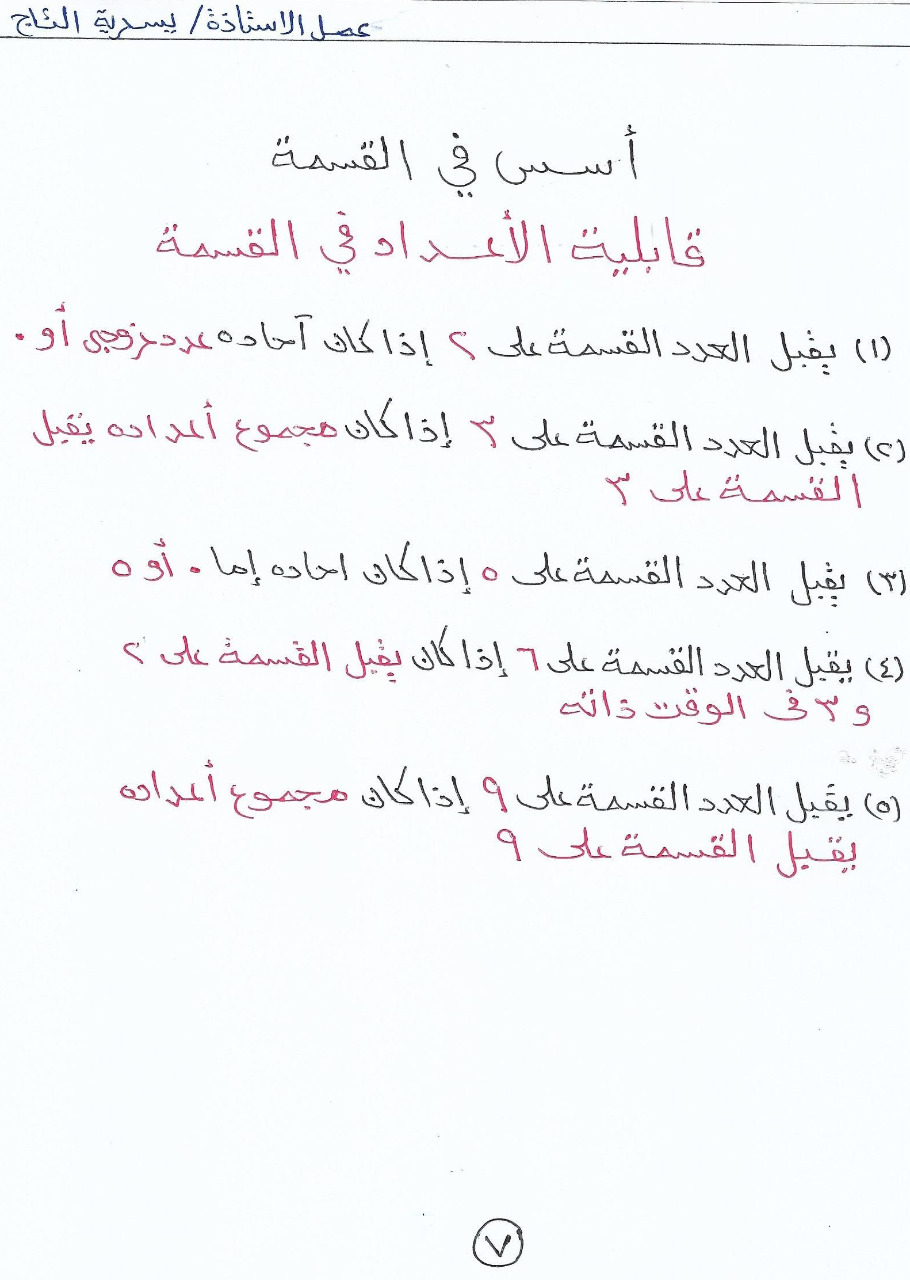 عمل الاستاذة/ يسرية التاج
أسس في القسمة
قابلية الأعداد في القسمة
(١) يقبل العدد القسمة على ٢ إذا كان آحاده عدد زوجى أو ٠
(٢) يقبل العدد القسمة على ٣ إذا كان مجموع أعداده يقبل
القسمة على ٣
(٣) يقبل العدد القسمة على ٥ إذا كان احاده إما ٠ أو ٥
(٤) يقبل العدد القسمة على ٦ إذا كان يقبل القسمة على ٢
و ٣ فى الوقت ذاته
(٥) يقبل العدد القسمة على ٩ إذا كان مجموع أعداده
يقبل القسمة على ٩
٧